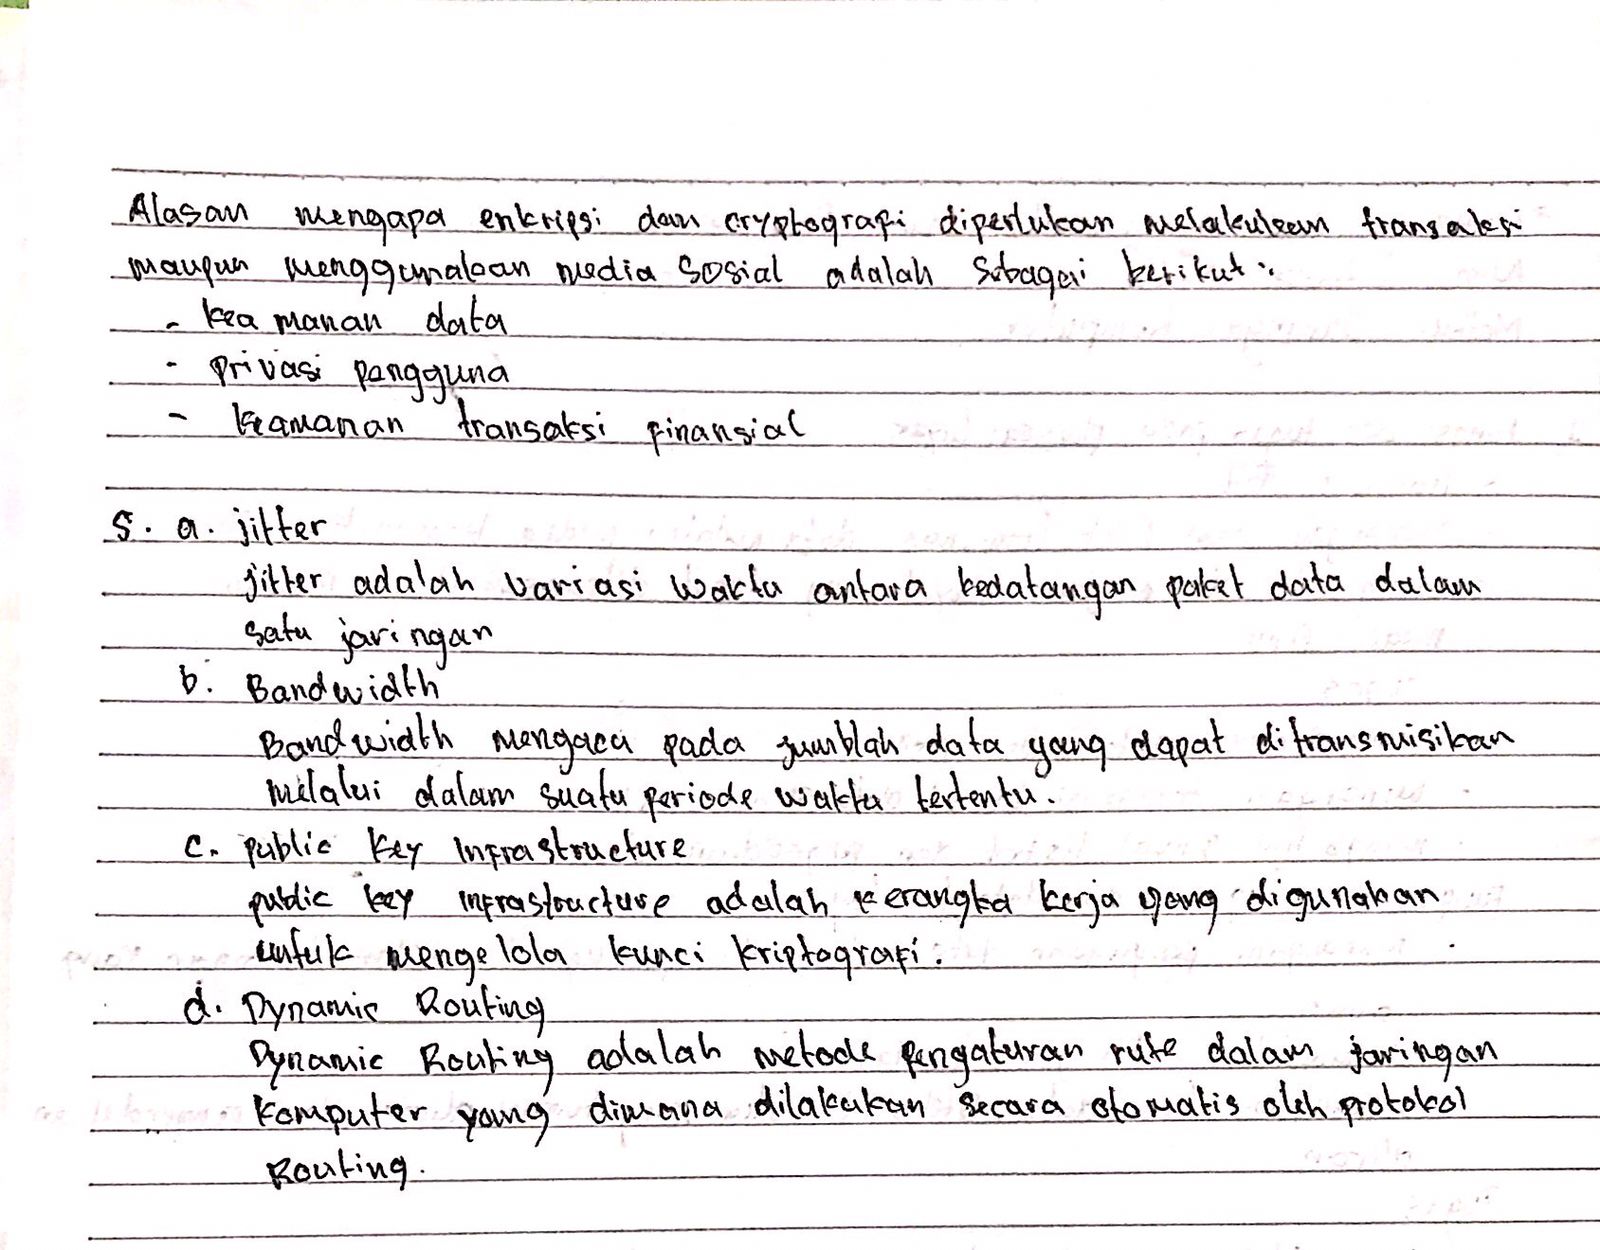 Alasan mengapa enkripsi dan cryptografi diperlukan melakukan transaksi
maupun menggunakan media sosial adalah sebagai berikut :
- keamanan data
- privasi pengguna
- keamanan transaksi finansial
5. a. jitter
jitter adalah variasi waktu antara kedatangan paket data dalam
satu jaringan
b. Bandwidth
Bandwidth mengacu pada jumblah data yang dapat ditransmisikan
melalui dalam suatu periode waktu tertentu.
c. public key Infrastructure
public key infrastructure adalah kerangka kerja yang digunakan
untuk mengelola kunci kriptografi.
d. Dynamic Routing
Dynamic Routing adalah metode pengaturan rute dalam jaringan
Komputer yang dimana dilakukan secara otomatis oleh protokol
Routing.